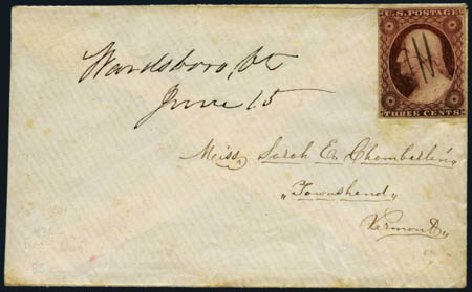 U.S. POSTAGE
THREE CENTS
Wardsboro, Vt
June 15
Miss Sarah E. Chamberlin,
"Townshend,
Vermont,"